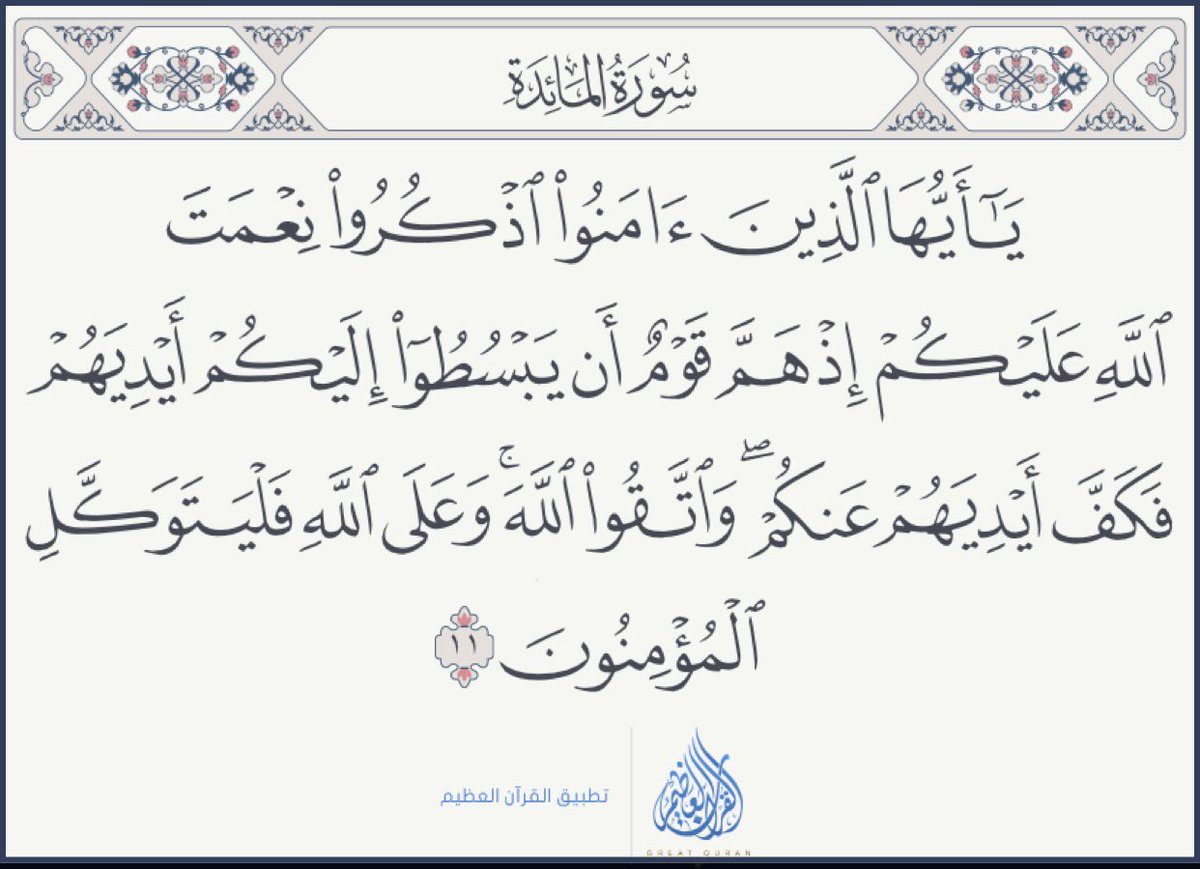 سُورَةُ المَائِدَةِ
يَـٰٓأَيُّهَا ٱلَّذِينَ ءَامَنُوا۟ ٱذْكُرُوا۟ نِعْمَتَ
ٱللَّهِ عَلَيْكُمْ إِذْ هَمَّ قَوْمٌ أَن يَبْسُطُوٓا۟ إِلَيْكُمْ أَيْدِيَهُمْ
فَكَفَّ أَيْدِيَهُمْ عَنكُمْ ۖ وَٱتَّقُوا۟ ٱللَّهَ ۚ وَعَلَى ٱللَّهِ فَلْيَتَوَكَّلِ
ٱلْمُؤْمِنُونَ ١١
القرآن العظيم
تطبيق القرآن العظيم
GREAT QURAN